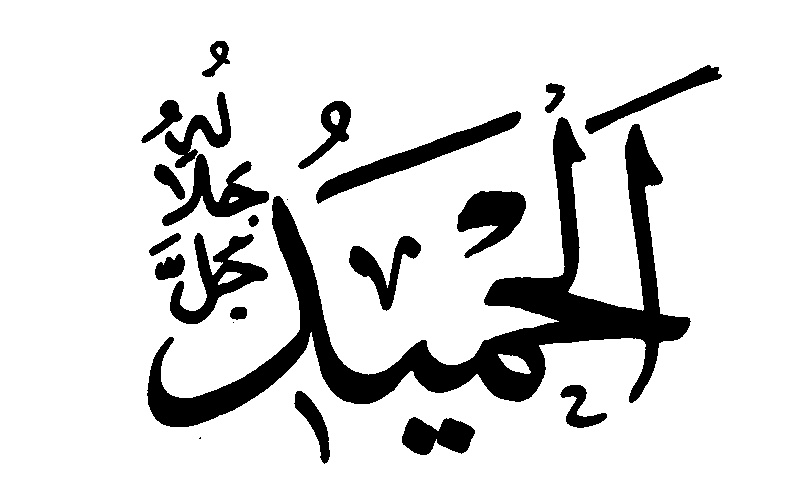 الحَمِيدُ
جَلَّ جَلَالُهُ